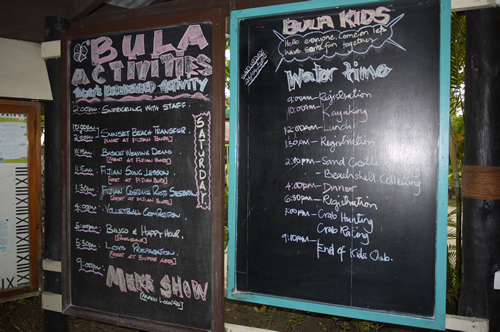 BULA
ACTIVITIES
2:00pm: SUNDECKING WITH STAFF.
10:00am SUNSET BEACH TRANSFER.
[MEET AT FIJIAN BURE]
BASKET WEAVING DEMO.
[MEET AT FIJIAN BURE]
FIJIAN SONG LESSON
[MEET AT FIJIAN BURE]
1:30pm FIJIAN SESSION.
[MEET AT FIJIAN BURE]
4:00pm: VOLLEYBALL COMPETITION
5:00pm: BINGO & HAPPY HOUR.
5:30pm: LOVO PREPARATION.
9:00pm: MEKE SHOW
[MAIN LOUNGE]
SATURDAY
BULA KIDS
Hello everyone, Come on lets
have some fun together
SATURDAY
Water time
9:00AM - Registration
10:00AM - Kayaking
12:00AM - Lunch
1:30PM - Registration
2:30PM - Sand Castle
- Beachshell Collecting
4:00PM - Dinner
6:30PM - Registration
7:30PM - Crab Hunting
Crab Racing
9:30PM - End of Kids Club.